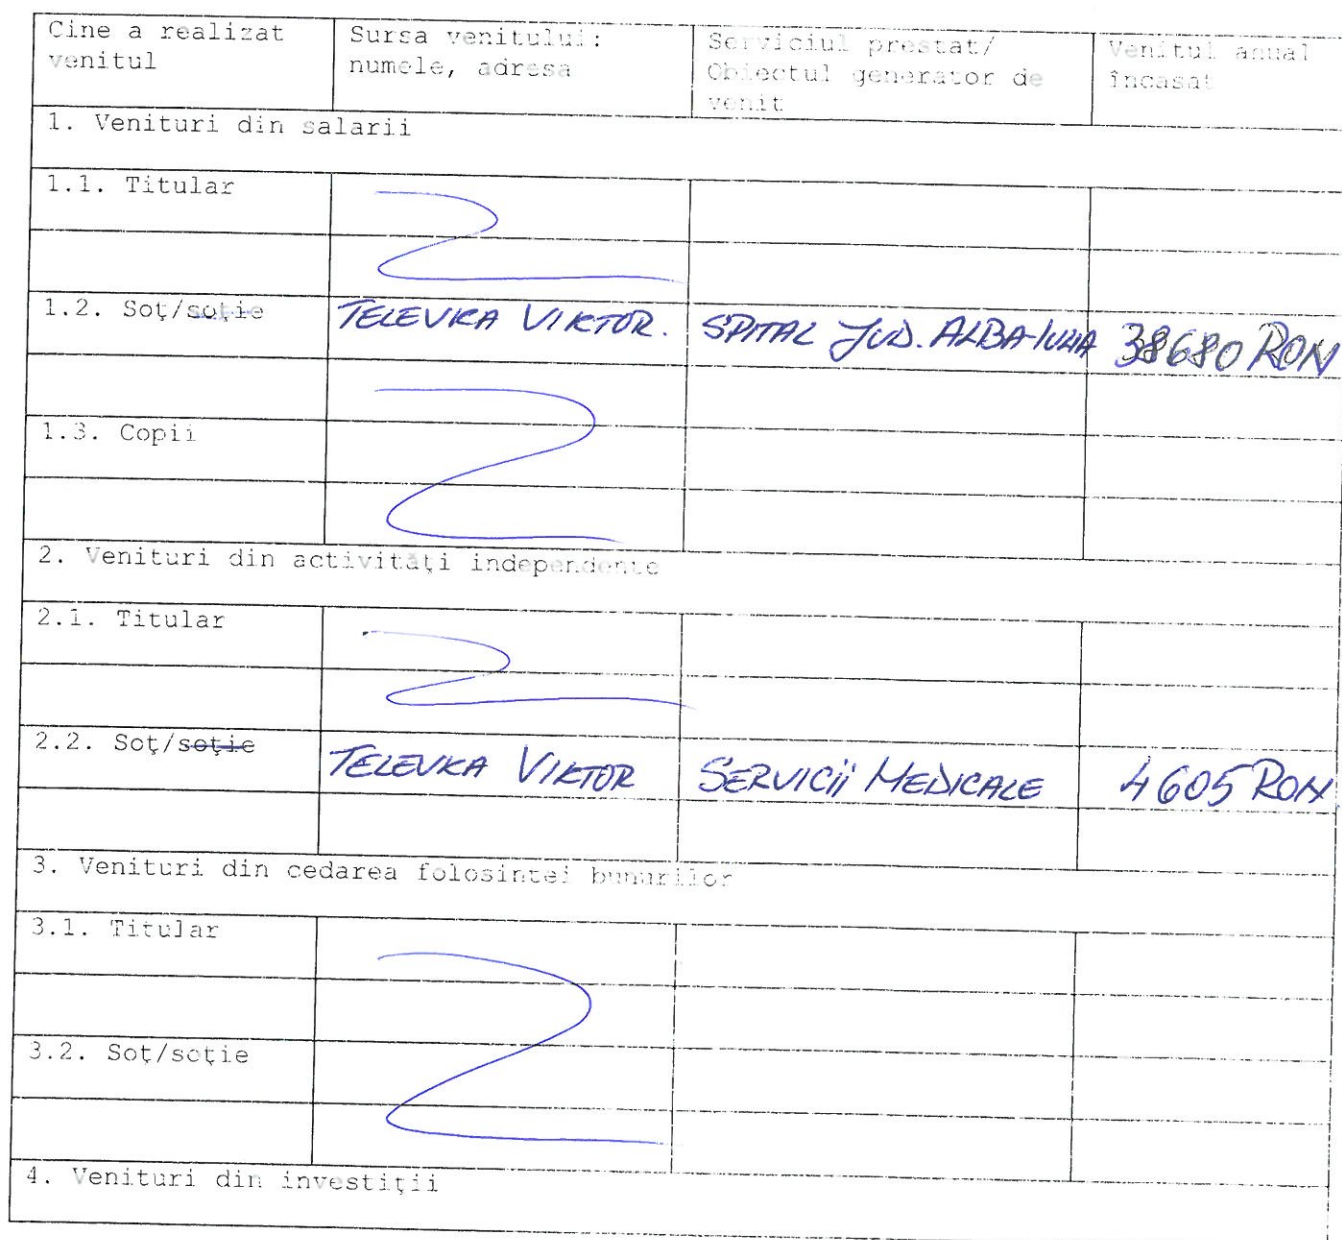 Cine a realizat
venitul
Sursa venitului:
numele, adresa
Serviciul prestat/
Obiectul generator de
venit
Venitul anual
încasat
1. Venituri din salarii
1.1. Titular
1.2. Soţ/soţie
TELEVKA VIKTOR.
SPITAL JUD. ALBA-IULIA
38680 RON
1.3. Copii
2. Venituri din activităţi independente
2.1. Titular
2.2. Soţ/soţie
TELEVKA VIKTOR
SERVICII MEDICALE
4605 RON
3. Venituri din cedarea folosintei bunurilor
3.1. Titular
3.2. Soţ/soţie
4. Venituri din investiţii